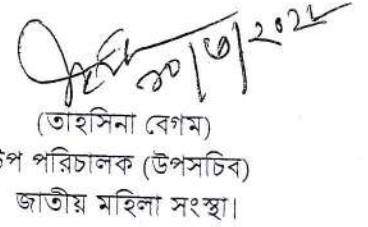 (তাহসিনা বেগম)
উপ পরিচালক (উপসচিব)
জাতীয় মহিলা সংস্থা।